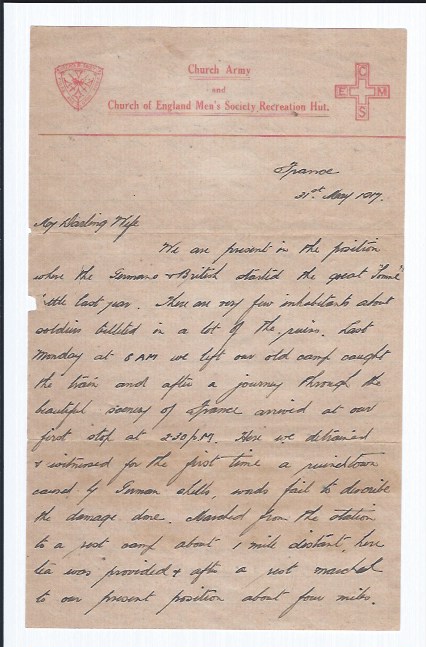 Church Army
and
Church of England Men's Society Recreation Hut.
C
E M
S
France
31st May 1917.
My Darling Wife
We are present in the position
where the Germans & British started the great "Somme"
Battle last year. There are very few inhabitants about
soldiers billeted in a lot of the ruins. Last
Monday at 8 AM we left our old camp caught
the train and after a journey through the
beautiful scenery of France arrived at our
first stop at 2-30 p.m. Here we detrained
& witnessed for the first time a ruined town
caused by German shells, words fail to describe
the damage done. Marched from the station
to a rest camp about 1 mile distant, here
tea was provided & after a rest marched
to our present position about four miles.